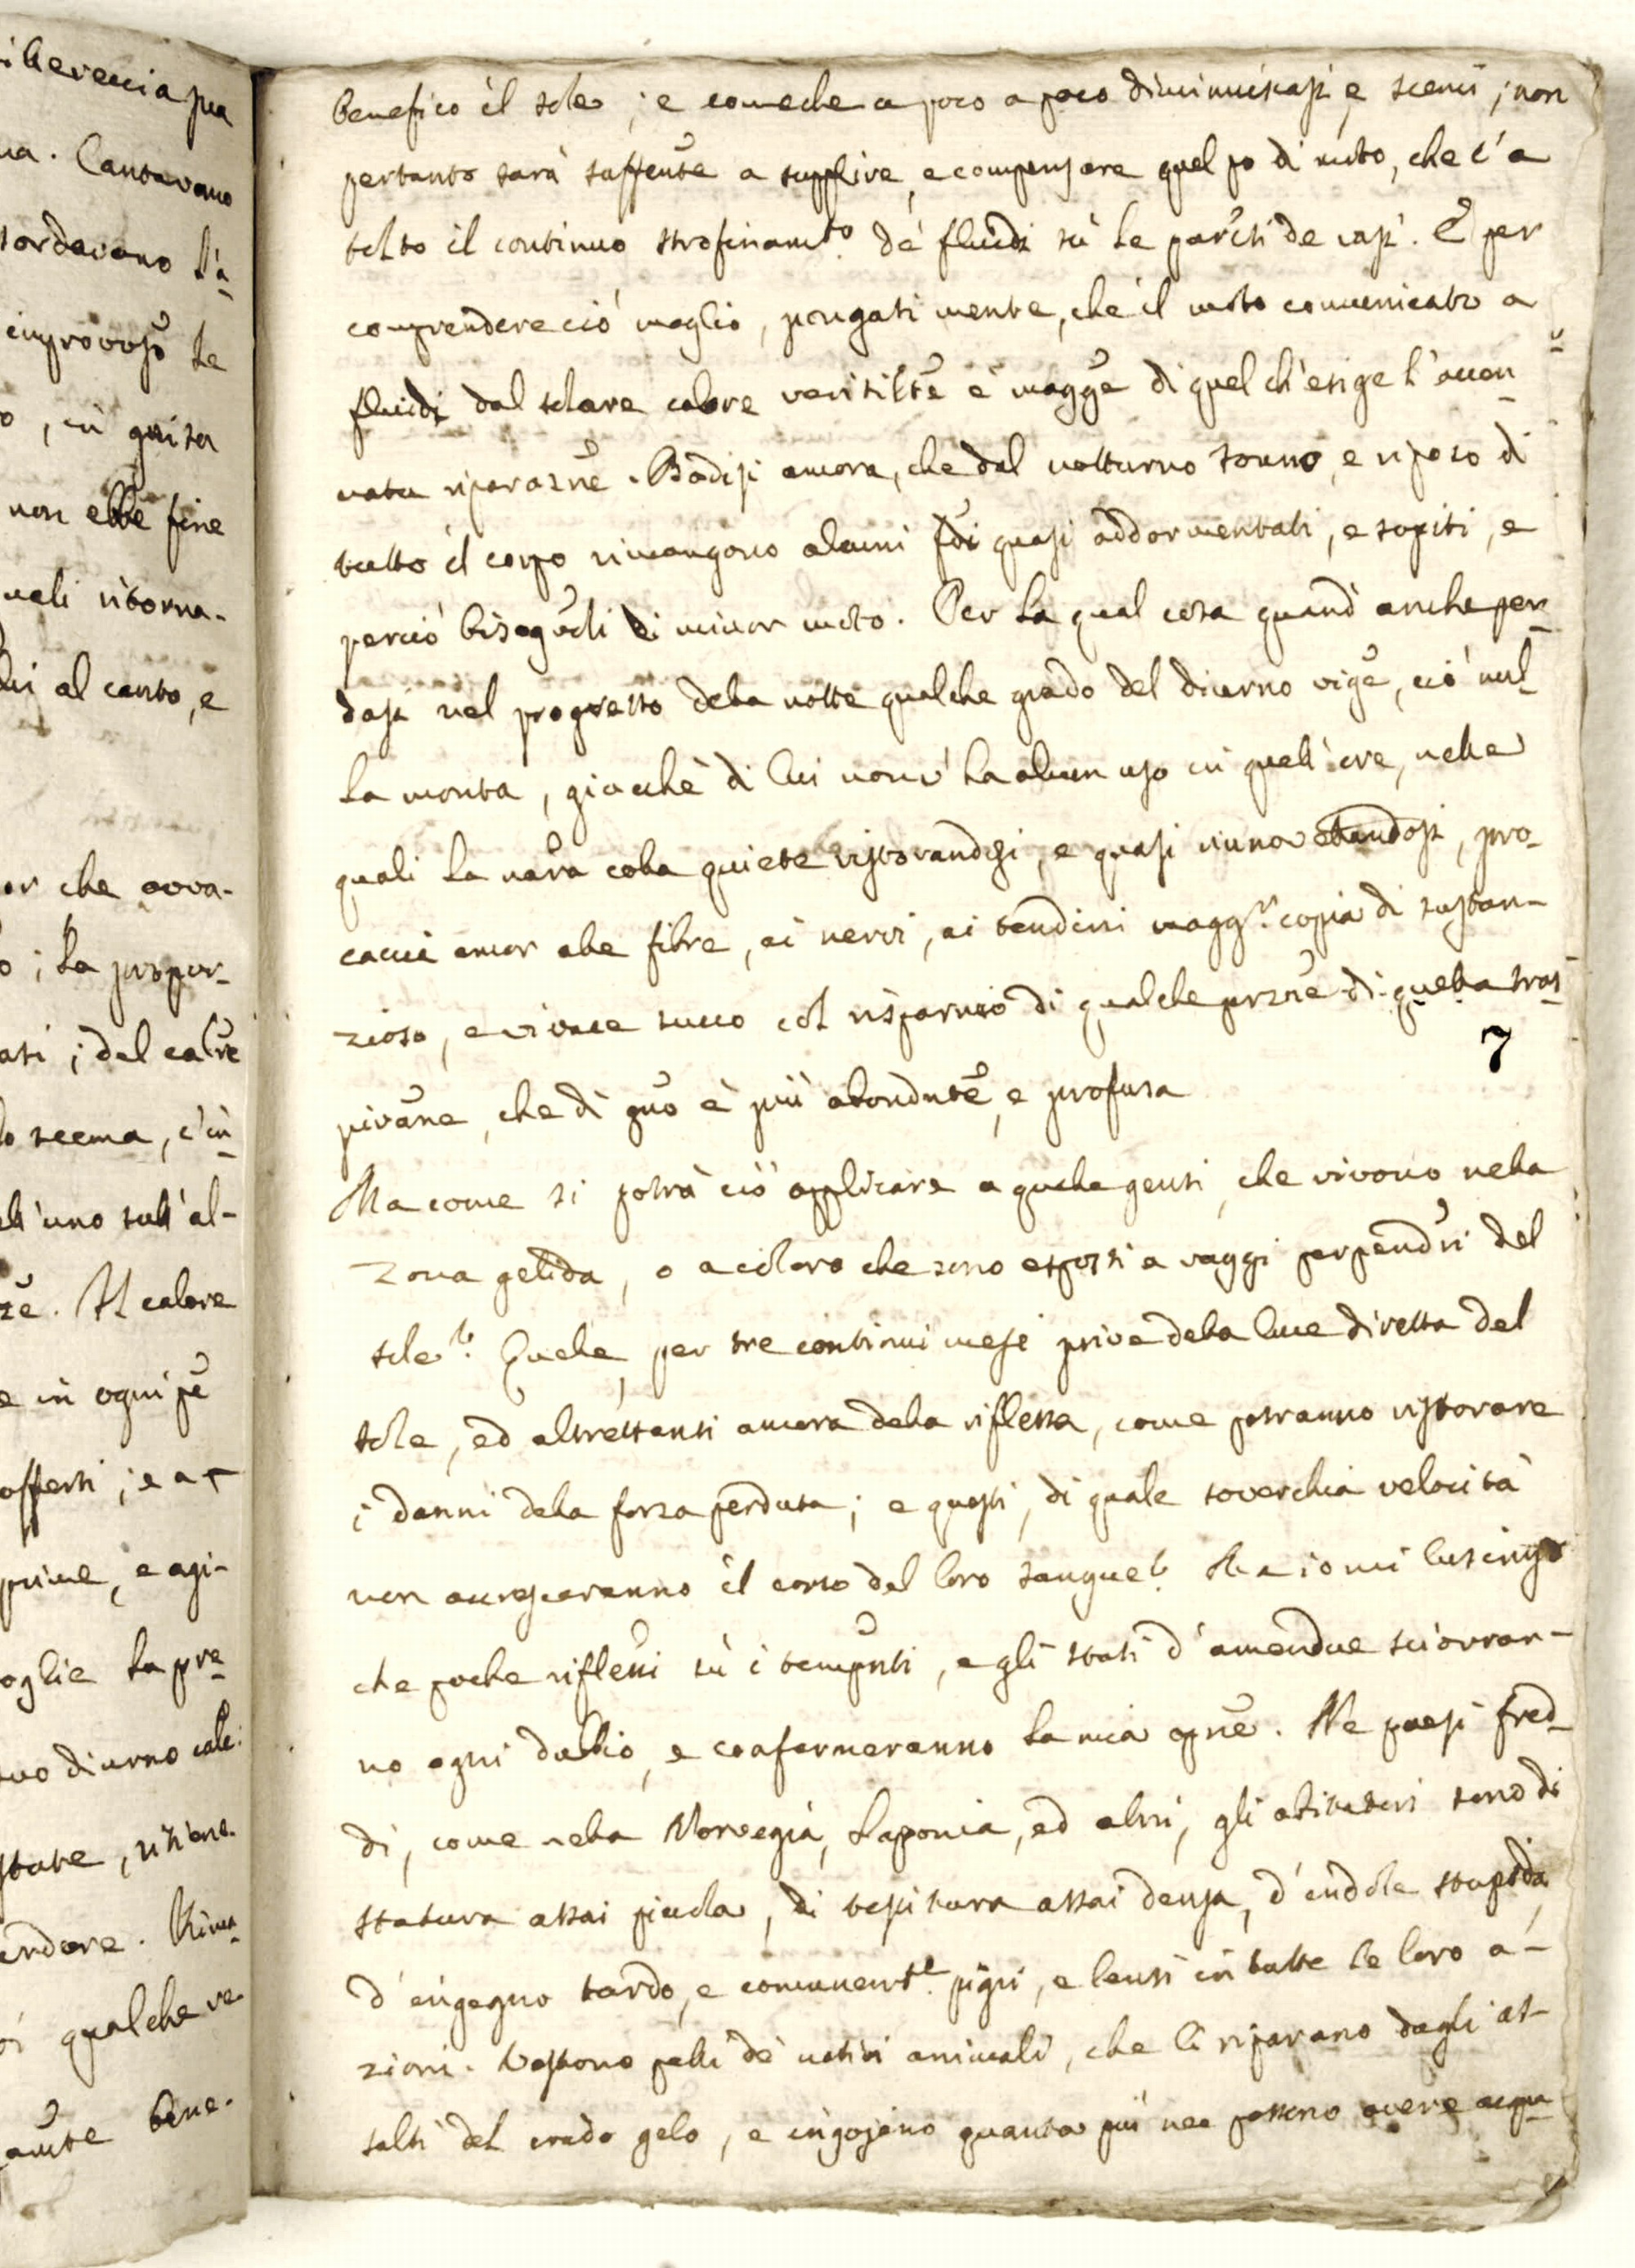 iberencia sua
ua. Cantavano
sordavano l'a_
improvviso le
o, in guisa
non ebbe fine
uali ritorna-
lui al canto, e
or che avva-
o; la propor-
ati; del calre
lo scema, e in
ll'uno sull'al-
ze. Il calore
e in ogni pe
offerti; e at
prime, e agi-
oglie la pre_
suo diurno calo:
state, ritiene
erdere. Rima_
qualche ve
amte bene-
benefico il sole; e comeche a poco a poco diminuiscasi, e scemi; non
pertanto sarà suffente a supplire, e compensare quel po di moto, che l'a
tolto il continuo strofinamto. de' fluidi sù le pareti de vasi. E per
comprendere ciò meglio, pongasi mente, che il moto comunicato a
fluidi dal solare calore verisilte è magge di quel ch'esige l'accen_
nata riparazne. Badisi ancora, che dal notturno sonno, e riposo di
tutto il corpo rimangono alcuni fdi quasi addormentati, e sopiti, e
perciò bisogvoli di minor moto. Per la qual cosa quand' anche per_
dasi nel progresso della notte qualche grado del diurno vige, ciò nul_
la monta, giacchè di lui non v'ha alcun uso in quell'ore, nelle
quali la nara colla quiete ristorandosi, e quasi rinnovellandosi, pro-
cacci amor alle fibre, ai nervi, ai tendini maggr. copia di sustan-
zioso, e vivace succo col risparmio di qualche przne di quella tras_
7
pirazne, che di gno è più abondnte, e profusa
Ma come si potrà ciò applicare a quelle genti, che vivono nella
zona gelida, o a coloro che sono esposti a raggi perpendri del
sole? Quelle, per tre continui mesi prive della luce diretta del
sole, ed altrettanti ancora della riflessa, come potranno ristorare
i danni della forza perduta; e questi, di quale soverchia velocità
non accresceranno il corso del loro sangue? Ma io mi lusingo
che poche riflessi sù i tempnti, e gli stati d'amendue sciorran-
no ogni dubbio, e confermeranno la mia opne. Ne paesi fred_
di, come nella Norvegia, Laponia, ed altri, gli abitatori sono di
statura assai picciola, di tessitura assai densa, d'indole stupida,
d'ingegno tardo, e comunemte. pigri, e lenti in tutte le loro a-
zioni. Vestono pelli de' nativi animali, che li riparano dagli as-
salti del crudo gelo, e ingojano quanta più nee possono avere acqu_